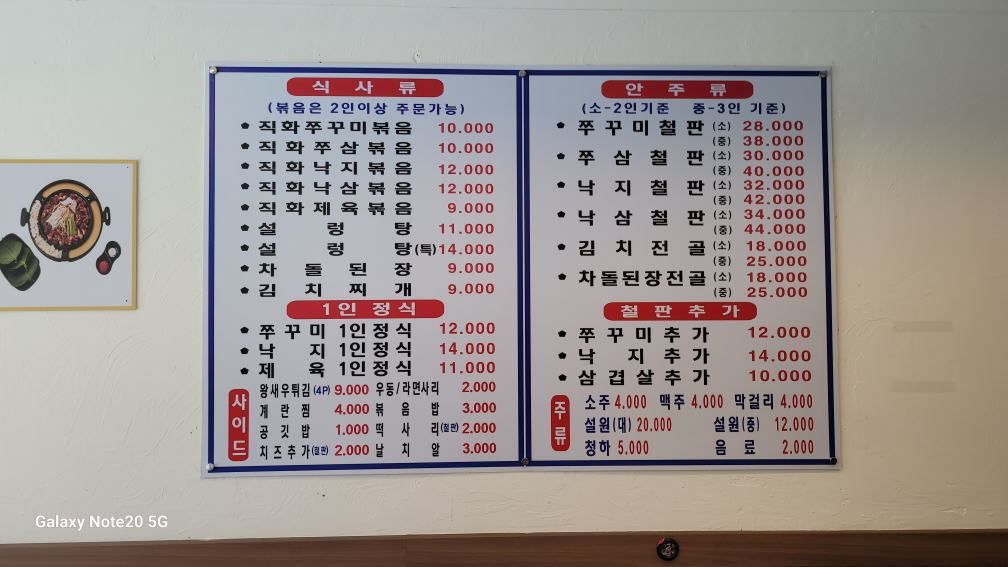 식사류
(볶음은 2인이상 주문가능)
직화쭈꾸미볶음 10.000
직화쭈삼볶음 10.000
직화낙지볶음 12.000
직화낙삼볶음 12.000
직화제육볶음 9.000
설렁탕 11.000
설렁탕(특) 14.000
차돌된장 9.000
김치찌개 9.000
1인정식
쭈꾸미 1인정식 12.000
낙지 1인정식 14.000
제육 1인정식 11.000
사이드
왕새우튀김(4P) 9.000 우동/라면사리 2.000
계란찜 4.000 볶음밥 3.000
공깃밥 1.000 떡사리(철판) 2.000
치즈추가(철판) 2.000 날치알 3.000
안주류
(소-2인기준 중-3인 기준)
쭈꾸미철판 (소) 28.000
(중) 38.000
쭈삼철판 (소) 30.000
(중) 40.000
낙지철판 (소) 32.000
(중) 42.000
낙삼철판 (소) 34.000
(중) 44.000
김치전골 (소) 18.000
(중) 25.000
차돌된장전골 (소) 18.000
(중) 25.000
철판추가
쭈꾸미추가 12.000
낙지추가 14.000
삼겹살추가 10.000
주류
소주 4.000 맥주 4.000 막걸리 4.000
설원(대) 20.000 설원(중) 12.000
청하 5.000 음료 2.000
Galaxy Note20 5G